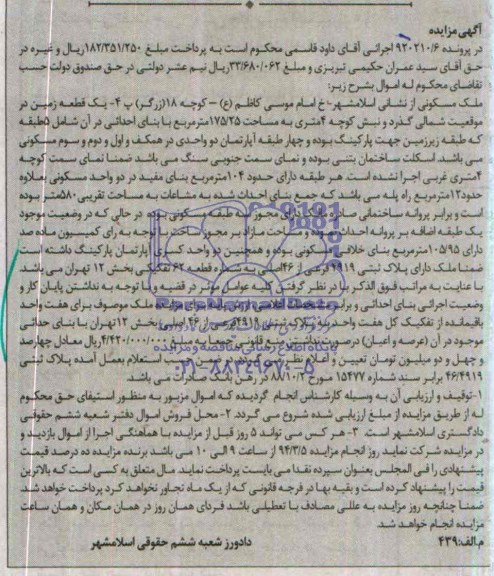 آگهی مزایده
در پرونده ۹۲۰۲۱۰/۶ اجرائی آقای داود قاسمی محکوم است به پرداخت مبلغ ۱۸۲/۳۵۱/۲۵۰ریال و غیره در
حق آقای سید عمران حکیمی تبریزی و مبلغ ۳۳/۶۸۰/۰۶۲ریال نیم عشر دولتی در حق صندوق دولت حسب
تقاضای محکوم له اموال بشرح زیر:
ملک مسکونی از نشانی اسلامشهر-خ امام موسی کاظم (ع) – کوچه ۱۸(زرگر) پ ۴- یک قطعه زمین در
موقعیت شمالی گذر و نبش کوچه ۴متری به مساحت ۱۷۵/۲۵مترمربع با بنای احداثی در آن شامل ۵طبقه
که طبقه زیرزمین جهت پارکینگ بوده و چهار طبقه آپارتمان دو واحدی در همکف و اول و دوم و سوم مسکونی
می باشد. اسکلت ساختمان بتنی بوده و نمای سمت جنوبی سنگ می باشد ضمنا نمای سمت کوچه
۴متری غربی اجرا نشده است. هر طبقه دارای حدود ۱۰۴مترمربع بنای مفید در دو واحد مسکونی بعلاوه
حدود۱۲مترمربع راه پله می باشد که جمع بنای احداث شده به مشاعات به مساحت تقریبی ۵۸۰متر بوده
است و برابر پروانه ساختمانی صادره ملک دارای مجوز سه طبقه مسکونی بوده در حالی که در وضعیت موجود
یک طبقه اضافه بر پروانه احداث گردیده و مساحت مازاد بر مجوز ساختمان با توجه به رای کمیسیون ماده صد
دارای ۱۰۵/۹۵مترمربع بنای خلاف مسکونی بوده و همچنین دو واحد کسری پارکینگ داشته است
ضمنا ملک دارای پلاک ثبتی ۴۹۱۹ فرعی از ۴۶اصلی به شماره قطعه ۶۲ تفکیکی بخش ۱۲ تهران می باشد.
با عنایت به مراتب فوق الذکر و با در نظر گرفتن کلیه عوامل موثر در قضیه و با توجه به نداشتن پایان کار و
وضعیت اجرائی بنای احداثی و برابر ارزش پایه برای مزایده ملک موصوف برای هفت واحد
باقیمانده از تفکیک کل هفت واحد پلاک ثبتی ۴۹۱۹فرعی از ۴۶ اصلی بخش ۱۲تهران با بنای احداثی
موجود در آن (عرصه و اعیان) درصورت نداشتن منع قانونی جمعا به مبلغ ۴/۴۲۰/۰۰۰/۰۰۰ریال معادل چهارصد
و چهل و دو میلیون تومان تعیین و اعلام نظر می گردد. در ضمن حسب استعلام بعمل آمده پلاک ثبتی
۴۶/۴۹۱۹ برابر سند شماره ۱۵۴۷۷ مورخ ۸۸/۱۰/۳ در رهن بانک صادرات می باشد.
۱-توقیف و ارزیابی آن به وسیله کارشناس انجام گردیده که اموال مزبور به منظور استیفای حق محکوم
له از طریق مزایده از مبلغ ارزیابی شده شروع می گردد. ۲- محل فروش اموال دفتر شعبه ششم حقوقی
دادگستری اسلامشهر است. ۳- هر کس می تواند ۵ روز قبل از مزایده با هماهنگی اجرا از اموال بازدید و
در مزایده شرکت نماید. روز انجام مزایده ۹۴/۳/۵ از ساعت ۹ الی ۱۰ می باشد. برنده مزایده ده درصد قیمت
پیشنهادی را فی المجلس بعنوان سپرده نقدا می بایست پرداخت نماید. مال متعلق به کسی است که بالاترین
قیمت را پیشنهاد کرده است و بقیه بها در فرجه قانونی که از یک ماه تجاوز نخواهد کرد پرداخت خواهد شد.
ضمنا چنانچه روز مزایده به عللی مصادف با تعطیلی باشد فردای همان روز در همان مکان و همان ساعت
مزایده انجام خواهد شد.
م.الف:۴۳۹ دادورز شعبه ششم حقوقی اسلامشهر
پایگاه اطلاع رسانی مناقصه و مزایده
۰۲۱-۸۸۳۴۹۶۷۰-۵